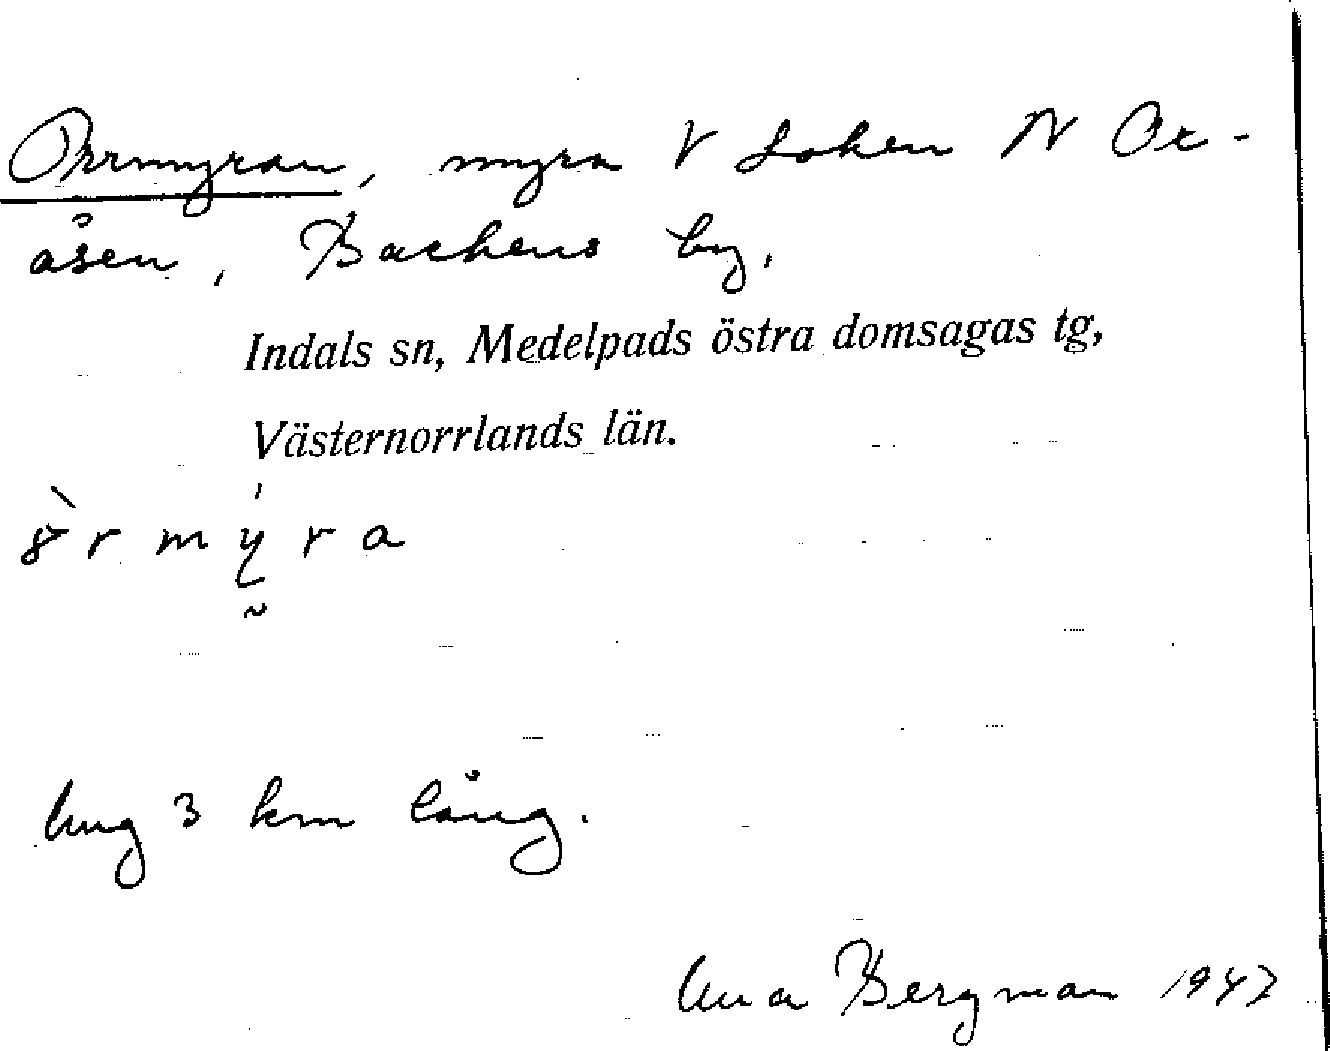 Orrmyran, myra V Loken N Or-
åsen, Backens by.
Indals sn, Medelpads östra domsagas tg,
Västernorrlands län.
ung 3 km lång.
Una Bergman 1947